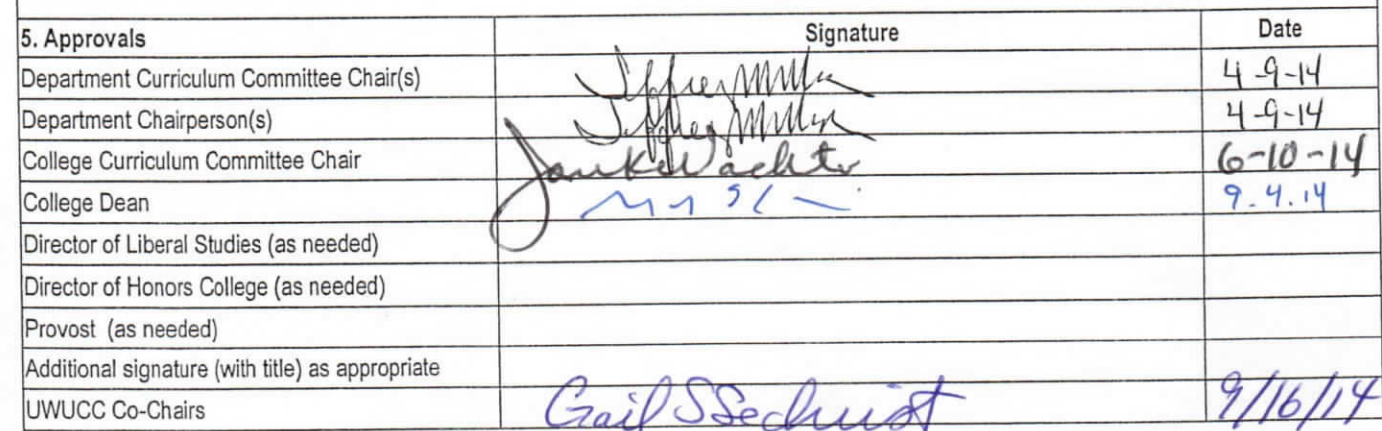 5. Approvals Signature Date
Department Curriculum Committee Chair(s) Jeffrey Miller 4-9-14
Department Chairperson(s) Jeffrey Miller 4-9-14
College Curriculum Committee Chair Wachter 6-10-14
College Dean 9.4.14
Director of Liberal Studies (as needed)
Director of Honors College (as needed)
Provost (as needed)
Additional signature (with title) as appropriate
UWUCC Co-Chairs Gail S Sechrist 9/16/14